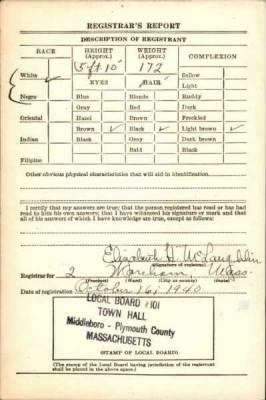 REGISTRAR'S REPORT
DESCRIPTION OF REGISTRANT
RACE HEIGHT (Approx.) WEIGHT (Approx.) COMPLEXION
5 ft. 10" 172 Sallow
White ✓ EYES HAIR Light
Negro Blue Blonde Ruddy
Gray Red Dark
Oriental Hazel Brown Freckled
Brown ✓ Black ✓ Light brown ✓
Indian Black Gray Dark brown
Bald Black
Filipino
Other obvious physical characteristics that will aid in identification
I certify that my answers are true; that the person registered has read or has had
read to him his own answers; that I have witnessed his signature or mark and that
all of his answers of which I have knowledge are true, except as follows:
Elizabeth H. McLaughlin
(Signature of registrar)
Registrar for 2 Wareham, Mass.
(Precinct) (Ward) (City or county) (State)
Date of registration October 16, 1940
LOCAL BOARD #101
TOWN HALL
Middleboro - Plymouth County
MASSACHUSETTS
(STAMP OF LOCAL BOARD)
(The stamp of the Local Board having jurisdiction of the registrant
shall be placed in the above space.)